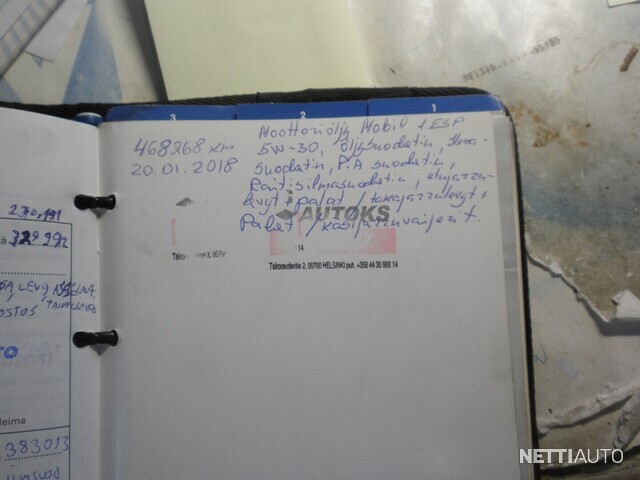 3
2
1
468268 km
20.01.2018
Moottoriöljy Mobil 1 ESP
5W-30, öljysuodatin, ilma-
suodatin, P.A suodatin,
Raitisilmasuodatin, etujarru-
levyt + palat / takajarrulevyt +
Palat / käsijarruvaijerit.
AUTOKS
14
Takoraudantie 2, 00700 HELSINKI puh. +358 44 30 888 14
270.191
LEVYJ
383013
leima
NETTIAUTO